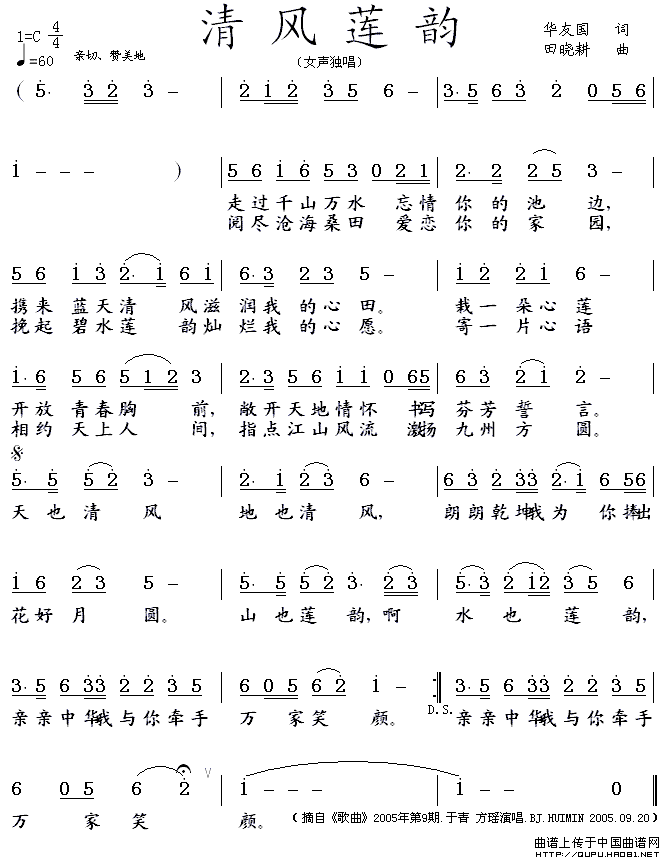 清风莲韵
1=C 4/4
♩=60 亲切、赞美地
（女声独唱）
华友国 词
田晓耕 曲
( 5̇· 3̇ 2̇ 3̇ – | 2̇ 1̇ 2̇ 3̇ 5̇ 6 – | 3· 5 6 3 2̇ 0 5 6 |
1̇ – – – ) | 5 6 1̇ 6 5 3 0 2 1 | 2· 2 2 5 3 – |
走过千山万水 忘情你的池边，
阅尽沧海桑田 爱恋你的家园，
5 6 1̇ 3̇ 2̇· 1̇ 6 1̇ | 6· 3 2 3 5 – | 1̇ 2̇ 2̇ 1̇ 6 – |
携来 蓝天清 风滋 润我的心田。 栽一朵心莲
挽起 碧水莲 韵灿 烂我的心愿。 寄一片心语
1̇· 6 5 6 5 1 2 3 | 2· 3 5 6 1̇ 1̇ 0 65 | 6 3 2 1 2 – |
开放 青春胸 前，敞开天地情怀 书写 芬芳誓言。
相约 天上人 间，指点江山风流 激扬 九州方圆。
5̇· 5̇ 5̇ 2̇ 3̇ – | 2̇· 1̇ 2̇ 3̇ 6 – | 6 3̇ 2̇ 3̇3̇ 2̇· 1̇ 6 56 |
天也清风 地也清风，朗朗乾坤我为 你捧出
1̇ 6 2 3 5 – | 5̇· 5̇ 5̇ 2̇ 3̇· 2̇ 3̇ | 5̇· 3̇ 2̇ 1̇2̇ 3̇ 5 6 |
花好月圆。 山也莲韵，啊 水也莲韵，
3̇· 5 6 3̇3̇ 2̇ 2̇ 3̇ 5 | 6 0 5 6 2̇ 1̇ – :‖ 3̇· 5 6 3̇3̇ 2̇ 2̇ 3̇ 5 |
D.S.
亲亲中华我与你牵手 万家笑颜。 亲亲中华我与你牵手
6 0 5 6 2̇ ∨ | 1̇ – – – | 1̇ – – 0 ‖
万家笑 颜。
（摘自《歌曲》2005年第9期.于青 方瑶演唱.BJ.HUIMIN 2005.09.20）
曲谱上传于中国曲谱网
HTTP://QUPU.HAO81.NET